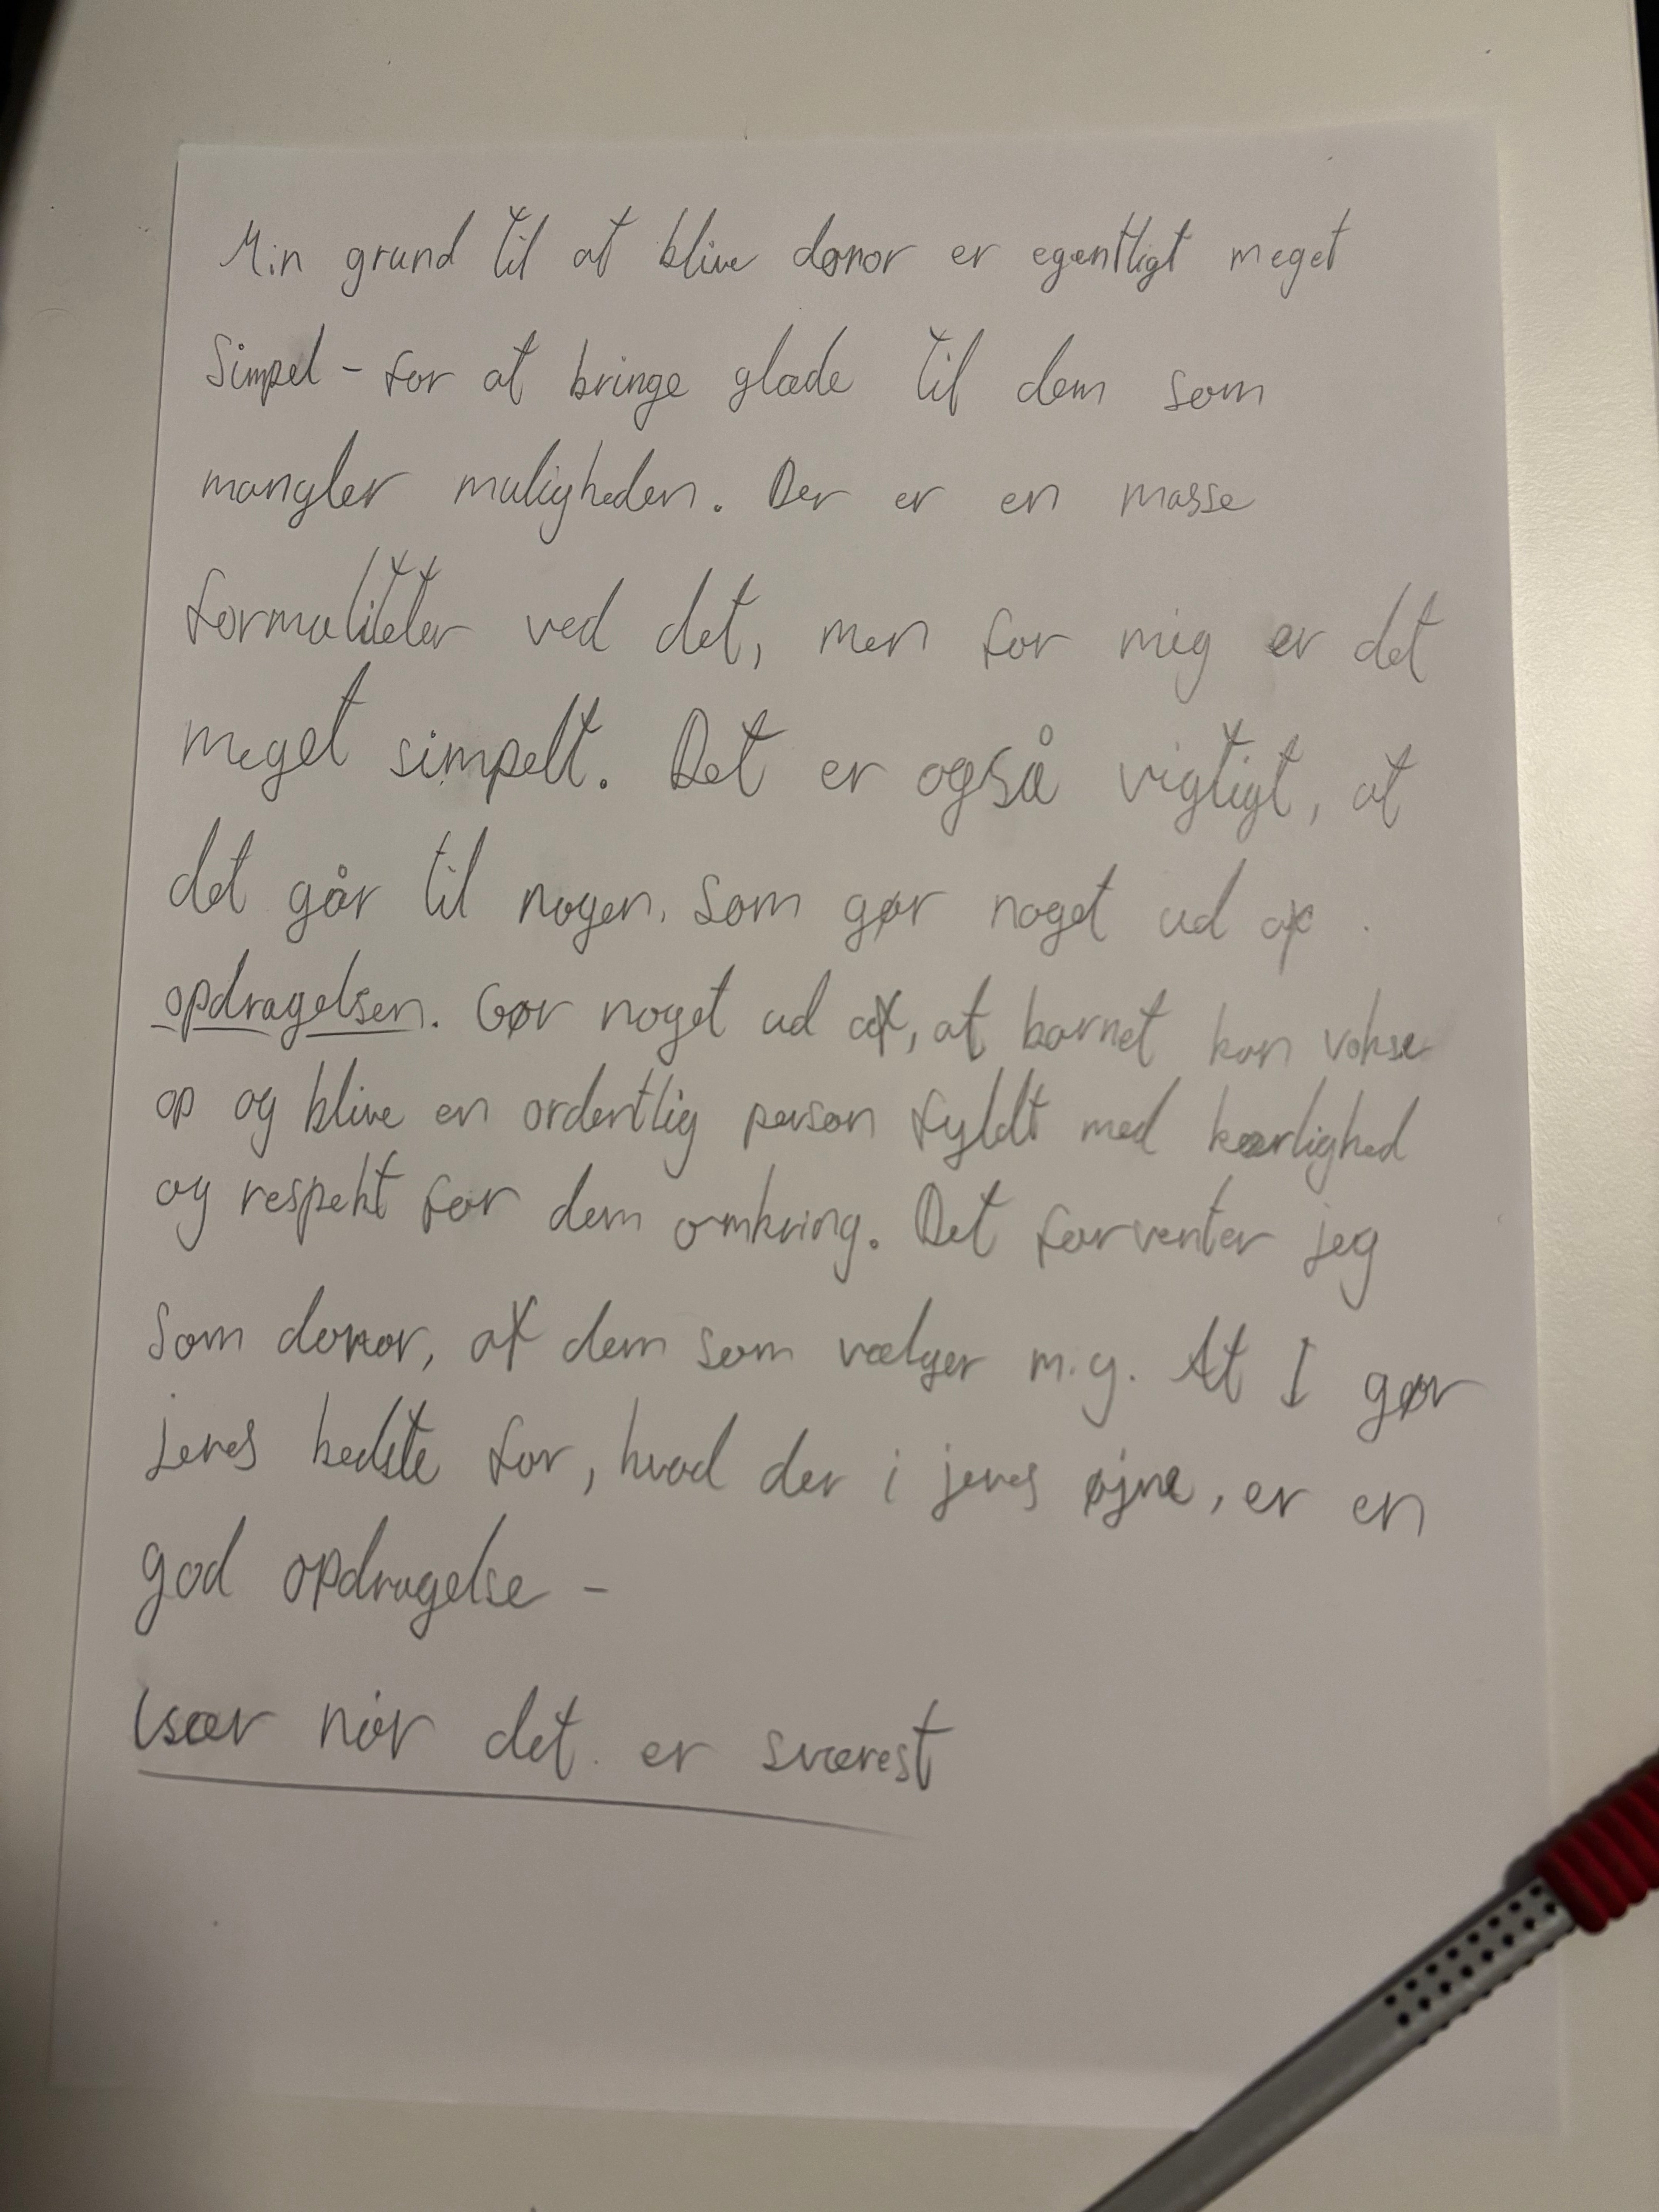 Min grund til at blive donor er egentligt meget
Simpel - for at bringe glæde til dem som
mangler muligheden. Der er en masse
formaliteter ved det, men for mig er det
meget simpelt. Det er også vigtigt, at
det går til nogen, som gør noget ud af
opdragelsen. Gør noget ud af, at barnet kan vokse
op og blive en ordentlig person fyldt med kærlighed
og respekt for dem omkring. Det forventer jeg
som donor, af dem som vælger mig. At I gør
jeres bedste for, hvad der i jeres øjne, er en
god opdragelse -
Især når det er sværest